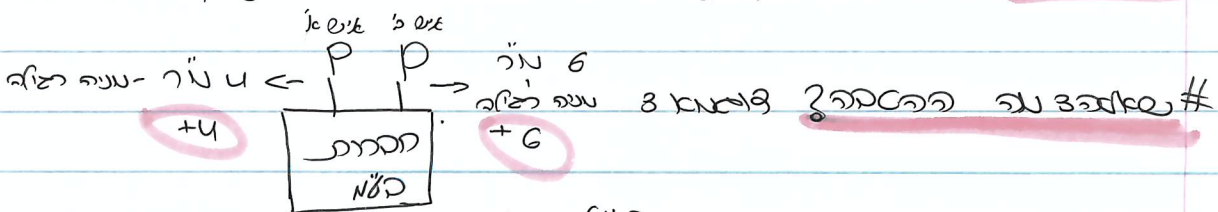 איש ב' איש א'
# שאלה 3 מה ההטבה? דוגמא 3
6 מ"ר
מניה רגילה
+6
4 מ"ר - מניה רגילה
+4
חברות
בע"מ